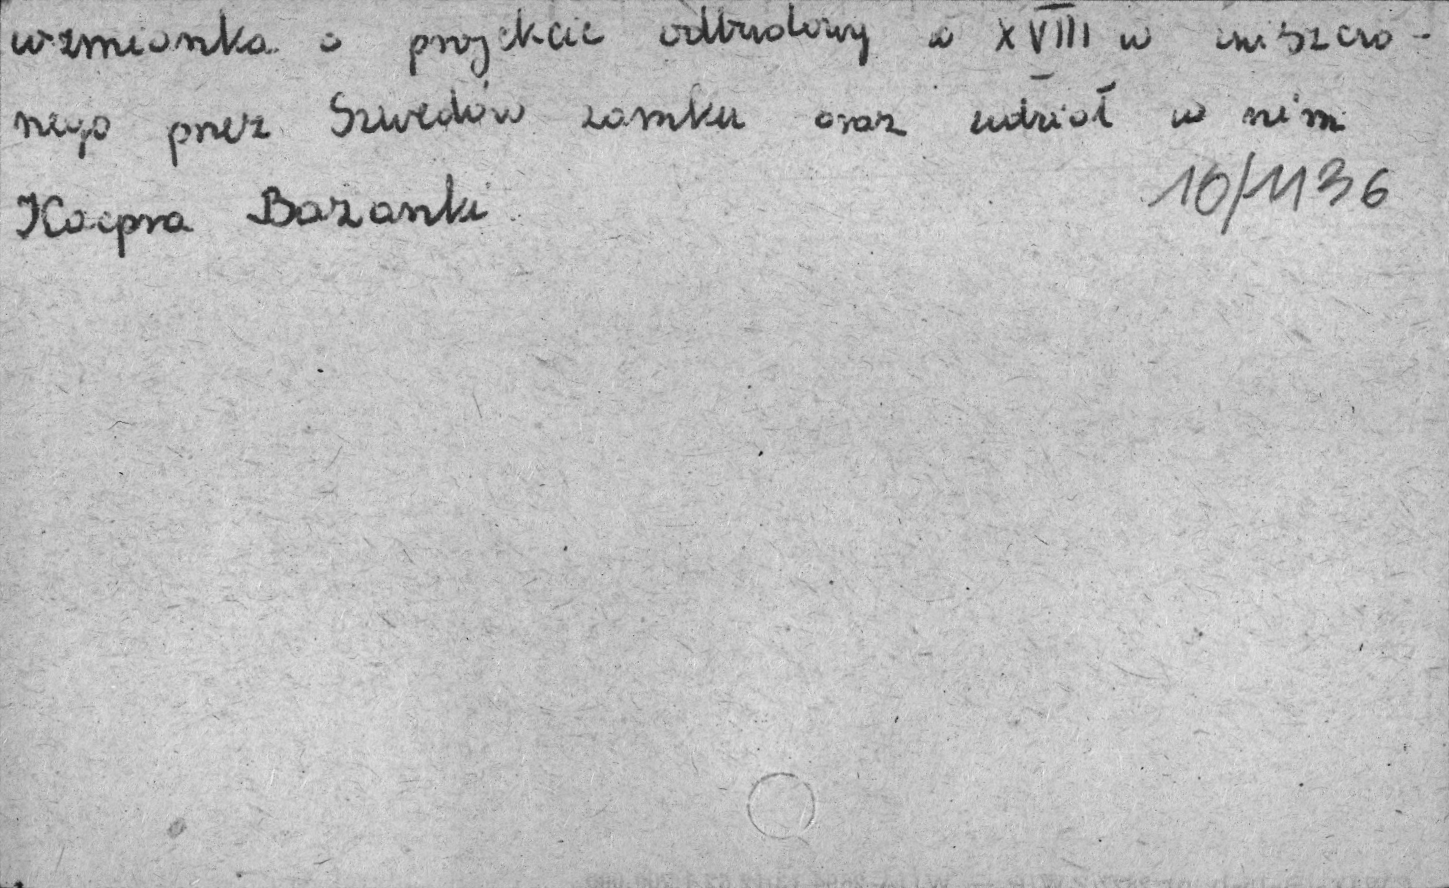 wzmianka o projekcie odbudowy w XVIII w zniszczo-
nego przez Szwedów zamku oraz udział w nim
Kacpra Bażanki
10/1136